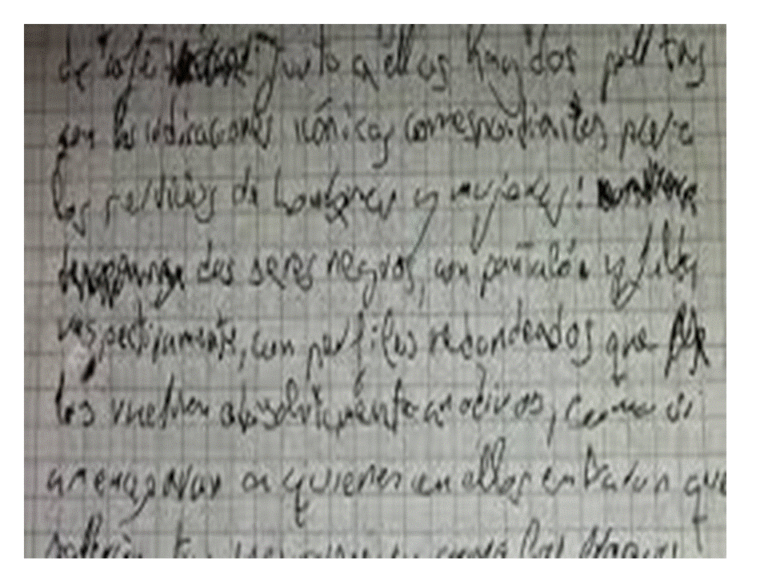 de café junto a ellas hay dos puertas
con las indicaciones icónicas correspondientes para
los servicios de hombres y mujeres:
dos seres negros, con pantalón y falda
respectivamente, con perfiles redondeados que
los vuelven absolutamente anodinos, como si
amenazaran a quienes en ellos entraran que